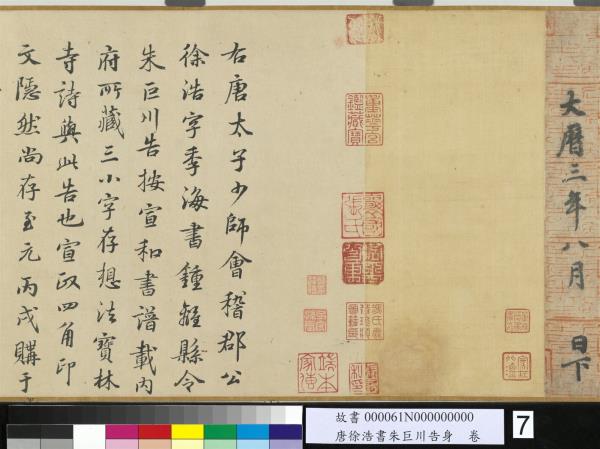 大曆三年八月　日下
右唐太子少師會稽郡公
徐浩字季海書鍾離縣令
朱巨川告按宣和書譜載內
府所藏三小字存想法寶林
寺詩與此告也宣政四角印
文隱然尚存至元丙戌購于
故書 000061N000000000
唐徐浩書朱巨川告身　卷
7